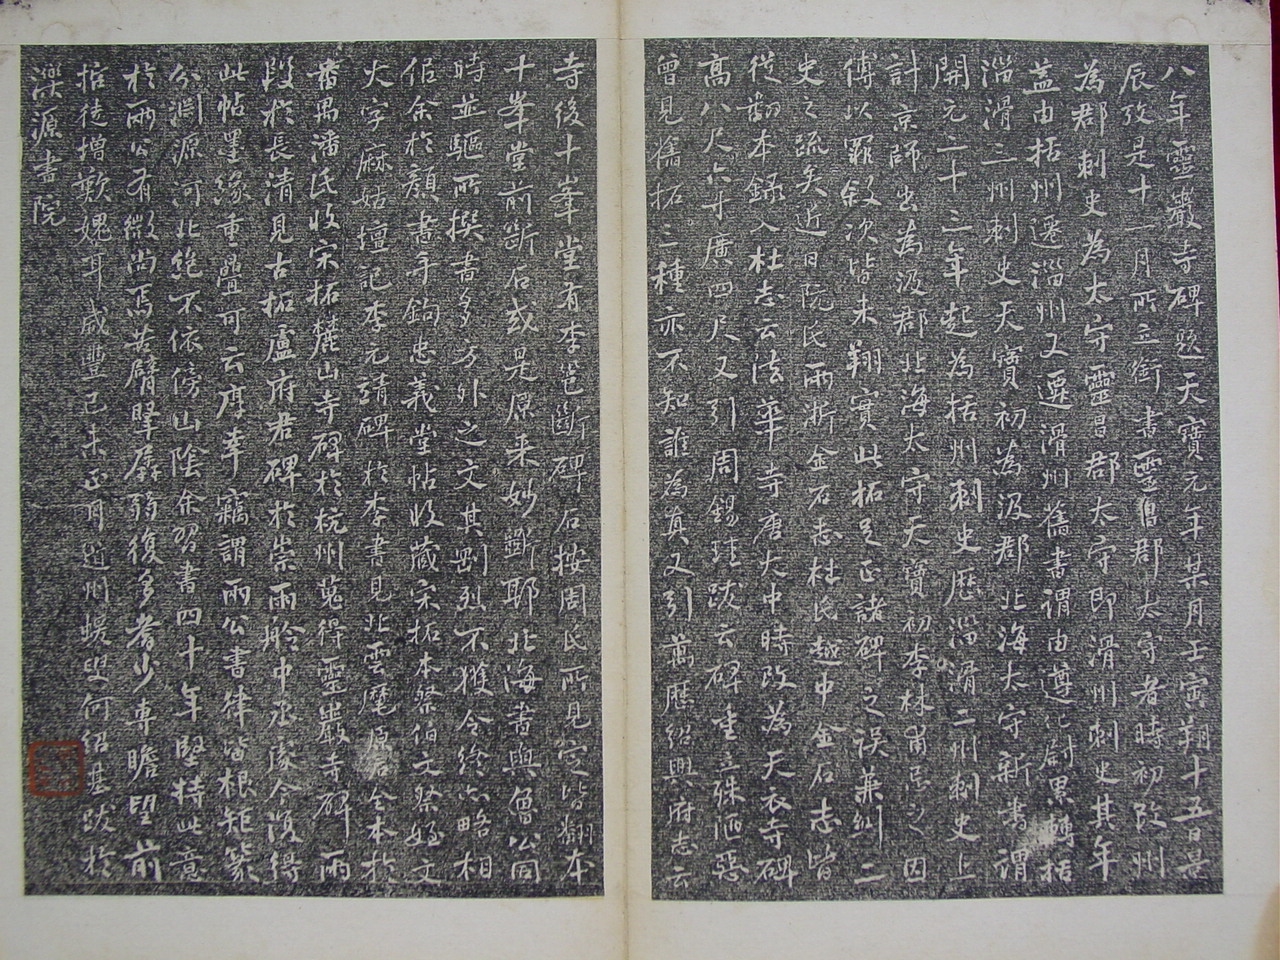 八年靈巖寺碑題天寶元年某月壬寅朔十五日景
辰攷是十一月所立銜書靈昌郡太守者時初改州
為郡刺史為太守靈昌郡太守即滑州刺史其年
蓋由括州遷淄州又遷滑州舊書謂由遵化尉累轉括
淄滑三州刺史天寶初為汲郡北海太守新書謂
開元二十三年起為括州刺史歷淄滑二州刺史上
計京師出為汲郡北海太守天寶初李林甫忌之因
傅以罪敘次皆未翔實此拓足正諸碑之誤兼糾二
史之疏矣近日阮氏兩浙金石志杜氏越中金石志皆
從翻本錄入杜志云法華寺唐大中時改為天衣寺碑
高八尺六寸廣四尺又引周錫珪跋云碑重立殊洒惡
曾見舊拓二種亦不知誰為真又引萬歷紹興府志云
寺後十峯堂有李邕斷碑石按周氏所見定皆翻本
十峯堂前斷石或是原來妙斷耶北海書與魯公同
時並驅所撰書多方外之文其剛烈不獲令終亦略相
似余於顏書手鉤忠義堂帖收藏宋拓本祭伯文祭姪文
大字麻姑壇記李元靖碑於李書見北雲麾原石全本於
番禺潘氏收宋拓麓山寺碑於杭州蒐得靈巖寺碑兩
段於長清見古拓盧府君碑於崇雨舲中丞處今復得
此帖墨緣重疊可云厚幸竊謂兩公書律皆根矩篆
分淵源河北絶不依傍山陰余習書四十年堅持此意
於兩公有微尚焉苦臂腕孱弱復多耆少專瞻望前
哲徒增歎媿耳咸豐己未正月道州蝯叟何紹基跋於
濼源書院